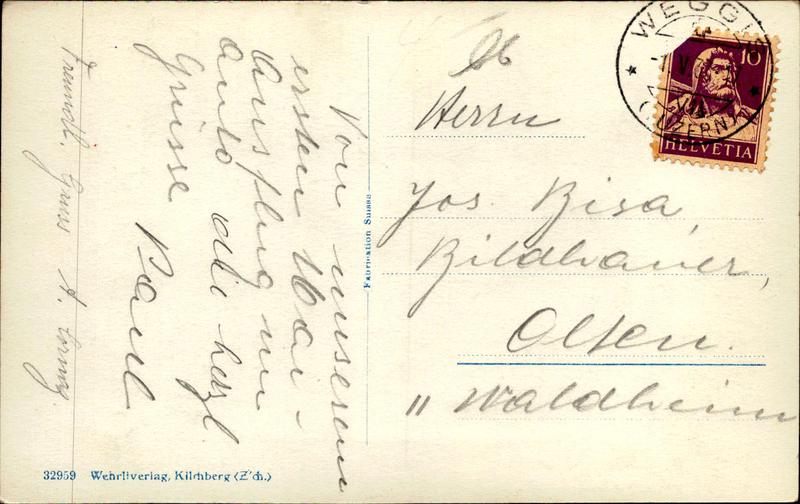 Von unserem
ersten Mai-
Ausflug im
Auto die herzl
Grüsse
Paul
Freundl. Gruss A.
Fabrication Suisse
32959 Wehrliverlag, Kilchberg (Z'ch.)
WEGGIS
(LUZERN)
10
HELVETIA
Herrn
Jos. Bisa,
Bildhauer,
Olten.
" Waldheim